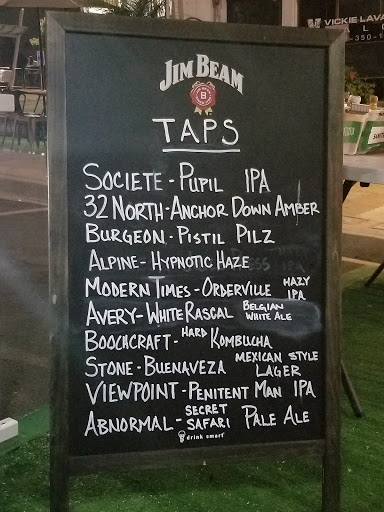 VICKIE LAVA
350-1
JIM BEAM
TAPS
SOCIETE - PUPIL IPA
32 NORTH - ANCHOR DOWN AMBER
BURGEON - PISTIL PILZ
ALPINE - HYPNOTIC HAZE
MODERN TIMES - ORDERVILLE HAZY IPA
AVERY - WHITE RASCAL BELGIAN WHITE ALE
BOOCHCRAFT - HARD KOMBUCHA
STONE - BUENAVEZA MEXICAN STYLE LAGER
VIEWPOINT - PENITENT MAN IPA
ABNORMAL - SECRET SAFARI PALE ALE
drink smart